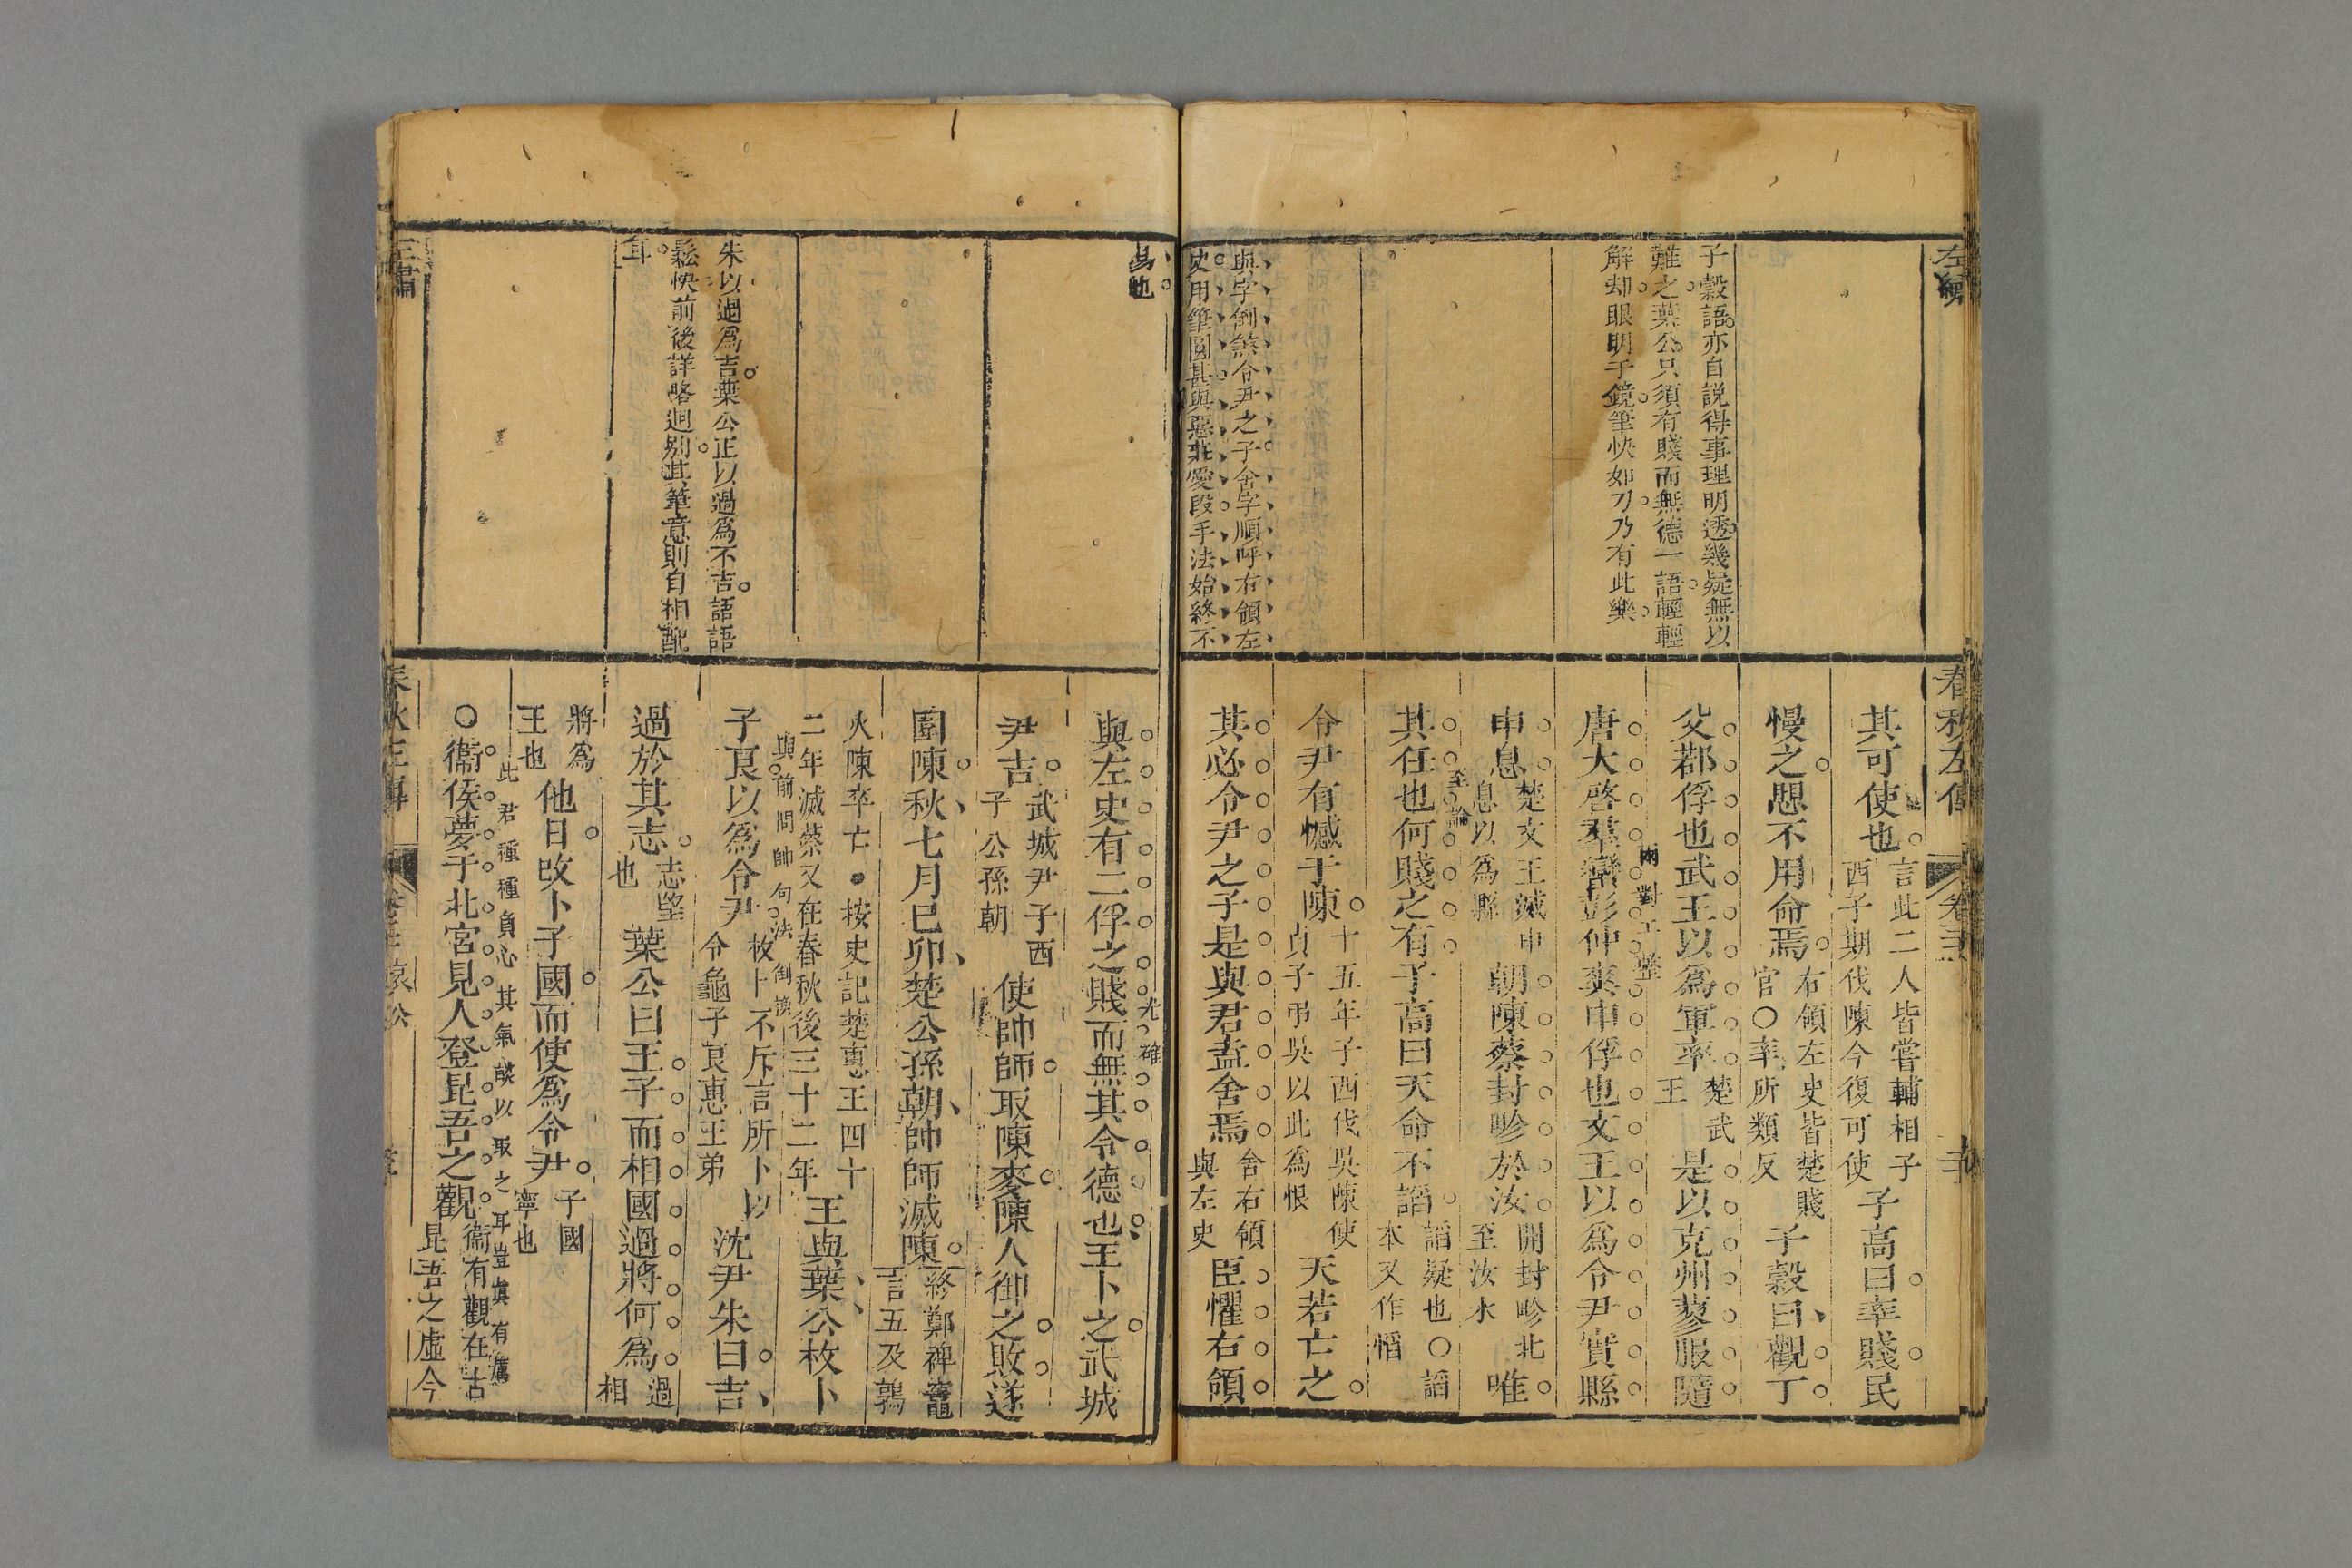 左繡
子穀語亦自説得事理明透幾疑無以
難之葉公只須有賤而無德一語輕輕
解却眼明于鏡筆快如刀乃有此樂
與字倒煞令尹之子舍字順呼右領左
史用筆圓甚與惡萊愛段手法始終不
春秋左傳
卷三
其可使也言此二人皆嘗輔相子西子期伐陳今復可使子高曰率賤民
慢之懼不用命焉右領左史皆楚賤官○率所類反子穀曰觀丁
父鄀俘也武王以爲軍率楚武王是以克州蓼服隨
兩對工整
唐大啓羣蠻彭仲爽申俘也文王以爲令尹實縣
申息楚文王滅申息以爲縣朝陳蔡封畛於汝開封畛北至汝水唯
至論
其任也何賤之有子高曰天命不謟謟疑也○謟本又作慆
令尹有憾于陳十五年子西伐吳陳使貞子弔吳以此爲恨天若亡之
其必令尹之子是與君盍舍焉舍右領與左史臣懼右領
易也
朱以過爲吉葉公正以過爲不吉語語
鬆快前後詳略迥別其筆意則自相配
耳
與左史有二俘之賤而無其令德也王卜之武城
尤確
尹吉武城尹子西子公孫朝使帥師取陳麥陳人御之敗遂
圍陳秋七月己卯楚公孫朝帥師滅陳終鄭裨竈言五及鶉
火陳卒亡●按史記楚惠王四十二年滅蔡又在春秋後三十二年王與葉公枚卜
與前問帥句法倒換
子良以爲令尹枚卜不斥言所卜以令龜子良惠王弟沈尹朱曰吉
過於其志志望也葉公曰王子而相國過將何爲過相
將爲王也他日改卜子國而使爲令尹子國寧也
此君種種負心其氣燄以取之耳豈眞有厲
○衞侯夢于北宮見人登昆吾之觀衞有觀在古昆吾之虛今
春秋左傳
哀公